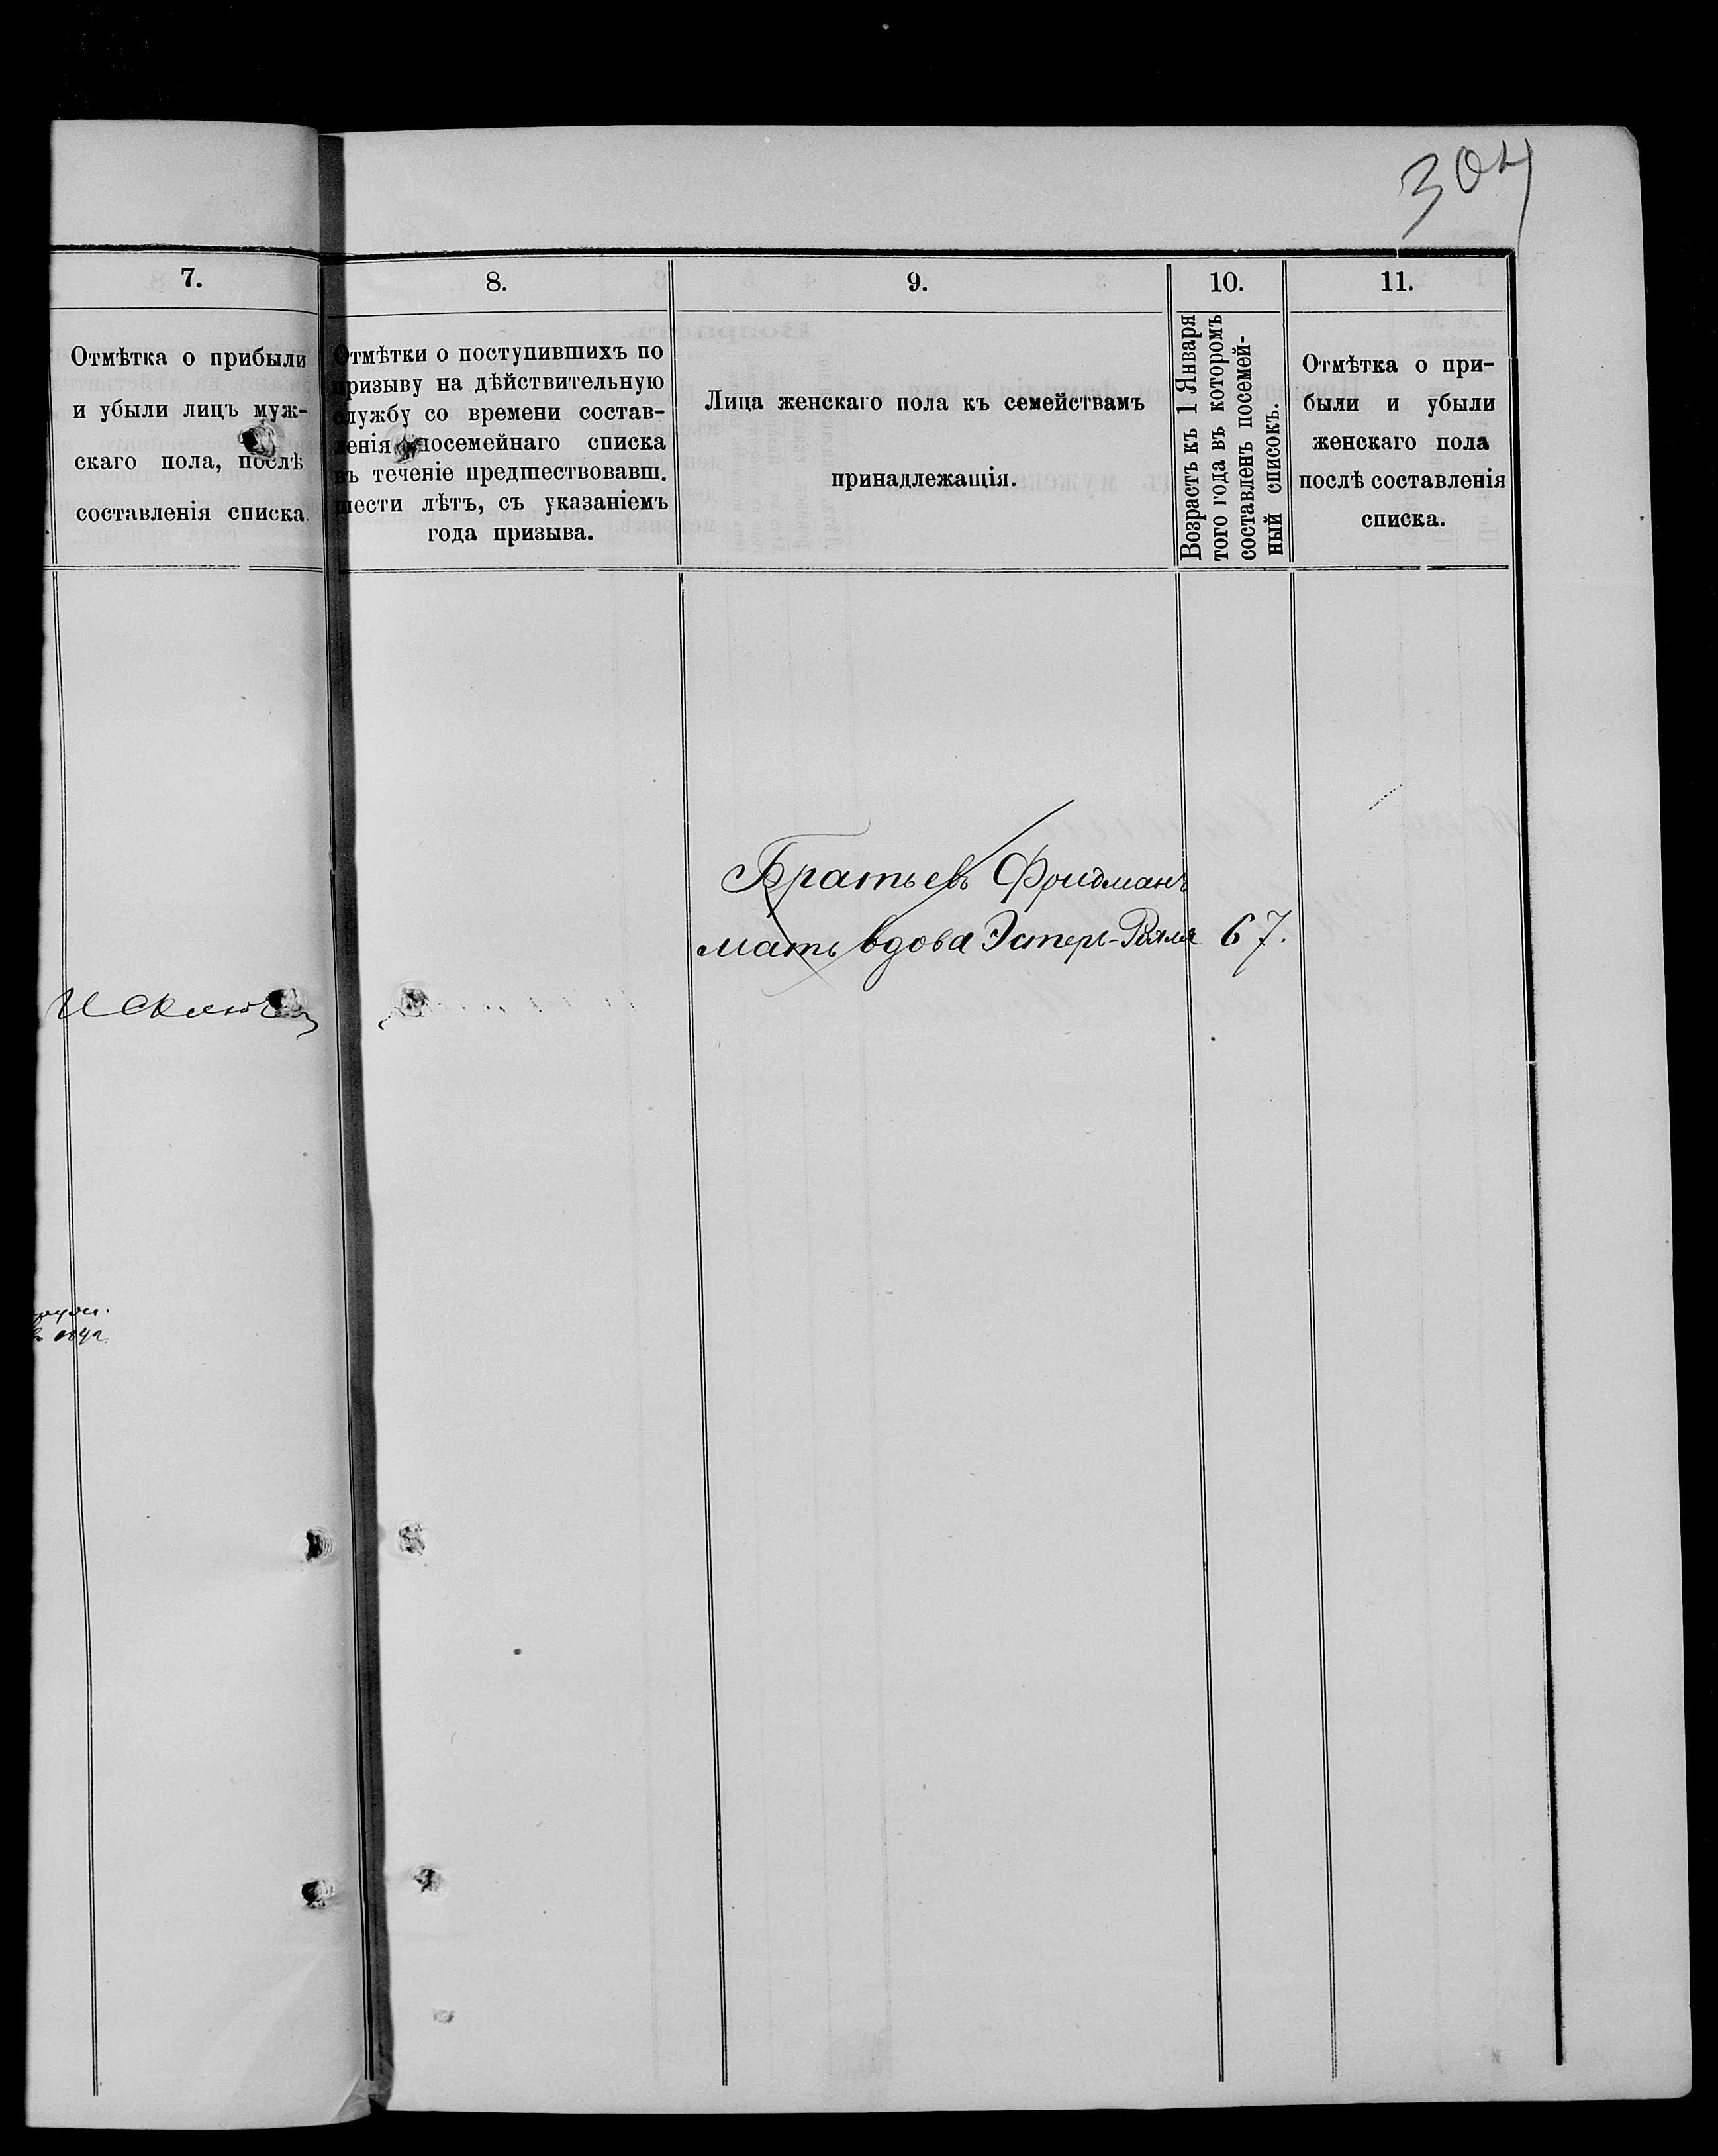 304
7.
Отмѣтка о прибыли
и убыли лицъ муж-
скаго пола, послѣ
составленія списка.
8.
Отмѣтки о поступившихъ по
призыву на дѣйствительную
службу со времени состав-
ленія посемейнаго списка
въ теченіе предшествовавш.
шести лѣтъ, съ указаніемъ
года призыва.
9.
Лица женскаго пола къ семействамъ
принадлежащія.
10.
Возрастъ къ 1 Января
того года въ которомъ
составленъ посемей-
ный списокъ.
11.
Отмѣтка о при-
были и убыли
женскаго пола
послѣ составленія
списка.
Братьевъ Фридманъ
мать вдова Эстеръ- 67.